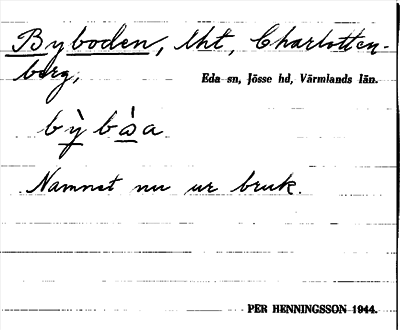 Byboden, lht, Charlotten-
berg,
Eda sn, Jösse hd, Värmlands län.
bỳ bå̀a
Namnet nu ur bruk.
PER HENNINGSSON 1944.